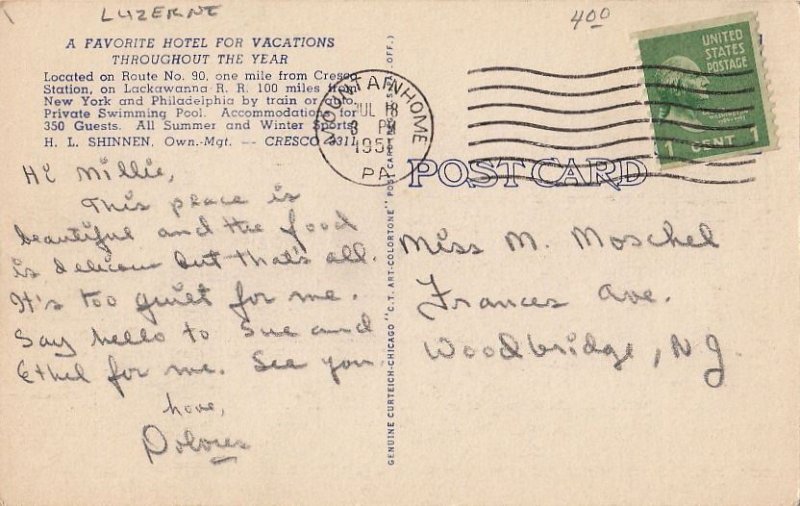 LUZERNE
400
A FAVORITE HOTEL FOR VACATIONS
THROUGHOUT THE YEAR
Located on Route No. 90, one mile from Cresco
Station, on Lackawanna R. R. 100 miles from
New York and Philadelphia by train or auto.
Private Swimming Pool. Accommodations for
350 Guests. All Summer and Winter Sports.
H. L. SHINNEN, Own.-Mgt. -- CRESCO 3311
MOUNTAINHOME
JUL 18
3 PM
195
PA.
UNITED
STATES
POSTAGE
1 CENT 1
POST CARD
Hi Millie,
This place is
beautiful and the food
is delicious but that's all.
It's too quiet for me.
Say hello to Sue and
Ethel for me. See you.
Love,
Dolores
Miss M. Moschel
Frances Ave.
Woodbridge, N.J.
GENUINE CURTEICH-CHICAGO "C.T. ART-COLORTONE" POST CARD (REG. U.S. PAT. OFF.)